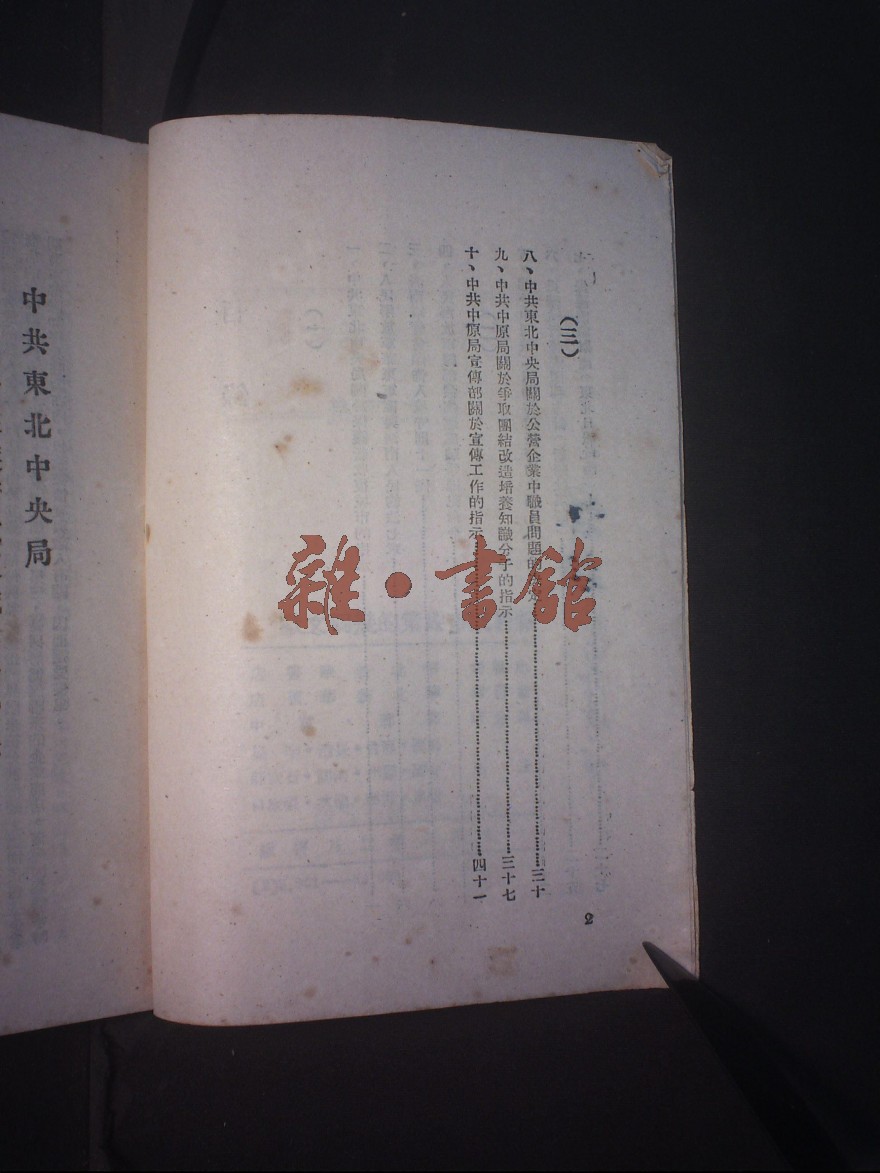 （三）
八、中共東北中央局關於公營企業中職員問題的……三十
九、中共中原局關於爭取團結改造培養知識分子的指示……三十七
十、中共中原局宣傳部關於宣傳工作的指示……四十一
2
中共東北中央局
雜·書館